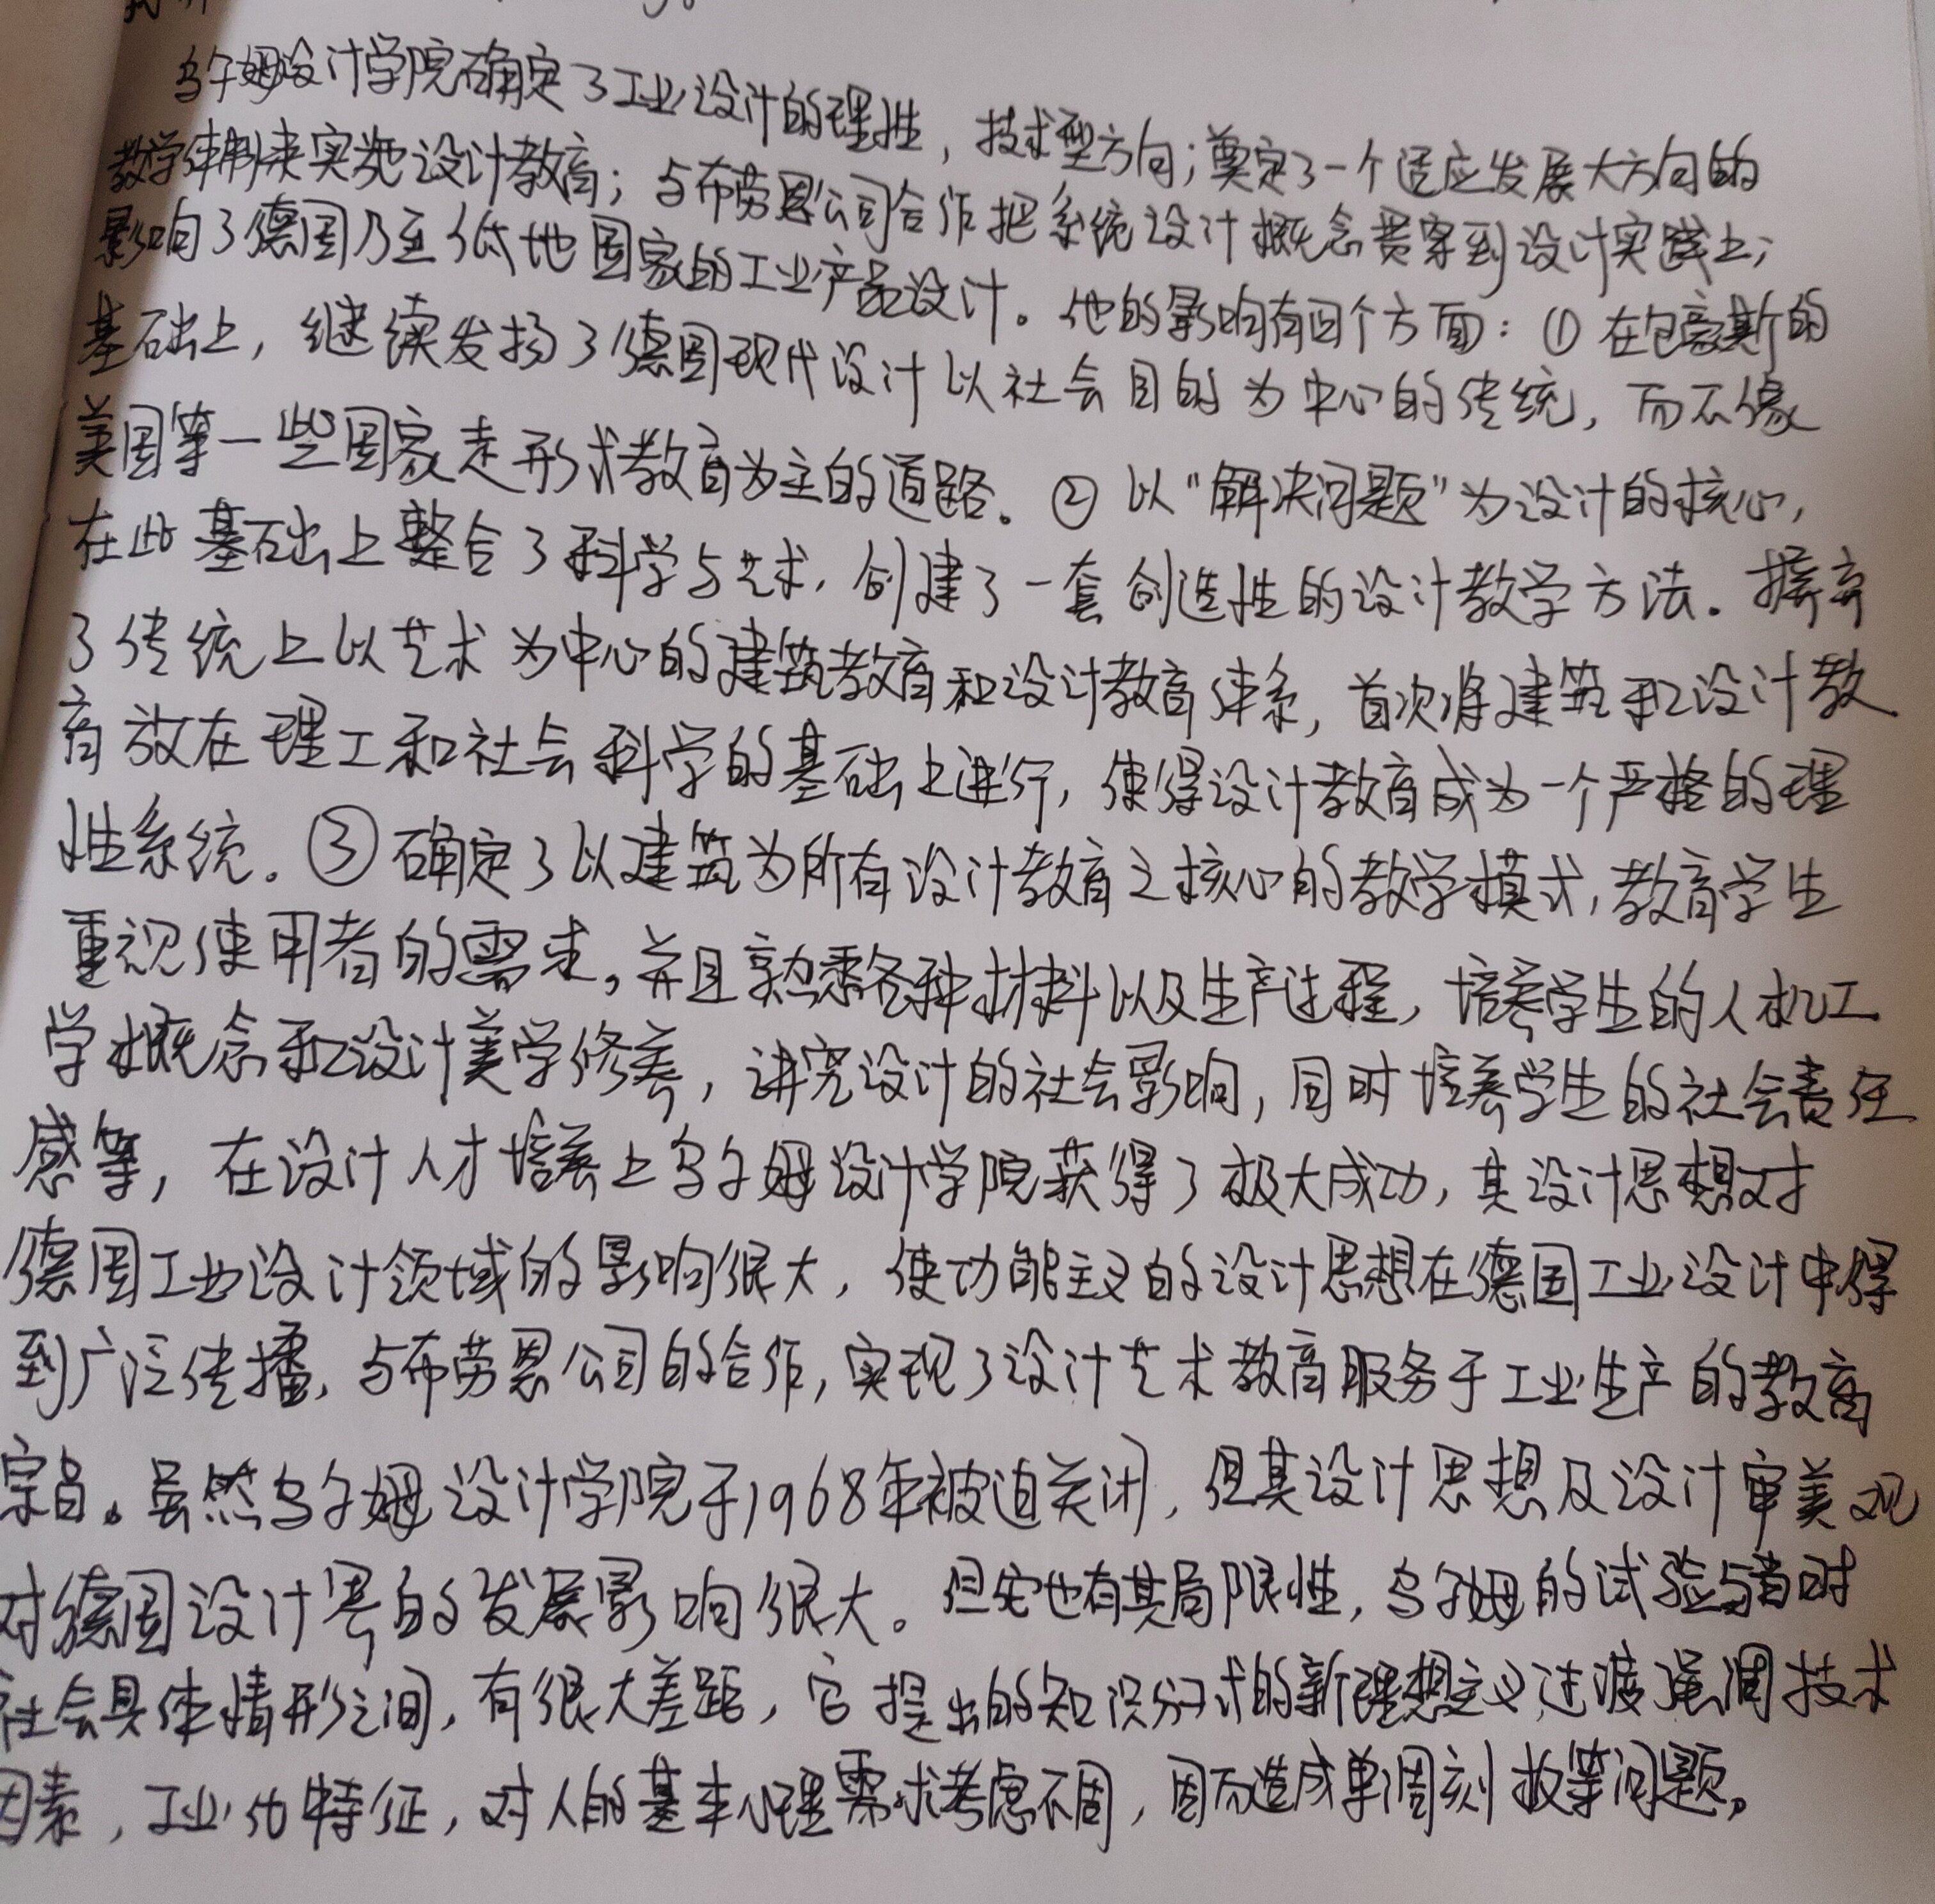 乌尔姆设计学院确定了工业设计的理性，技术型方向；奠定了一个适应发展大方向的
教学体制来实施设计教育；与布劳恩公司合作把系统设计概念贯穿到设计实践上；
影响了德国乃至低地国家的工业产品设计。他的影响有四个方面：① 在包豪斯的
基础上，继续发扬了德国现代设计以社会目的为中心的传统，而不像
美国等一些国家走形式教育为主的道路。② 以“解决问题”为设计的核心，
在此基础上整合了科学与艺术，创建了一套创造性的设计教学方法。摒弃
了传统上以艺术为中心的建筑教育和设计教育体系，首次将建筑和设计教
育放在理工和社会科学的基础上进行，使得设计教育成为一个严格的理
性系统。③确定了以建筑为所有设计教育之核心的教学模式，教育学生
重视使用者的需求。并且熟悉各种材料以及生产过程，培养学生的人机工
学概念和设计美学修养，讲究设计的社会影响，同时培养学生的社会责任
感等，在设计人才培养上乌尔姆设计学院获得了极大成功，其设计思想对
德国工业设计领域的影响很大，使功能主义的设计思想在德国工业设计中得
到广泛传播，与布劳恩公司的合作，实现了设计艺术教育服务于工业生产的教育
宗旨。虽然乌尔姆设计学院于1968年被迫关闭，但其设计思想及设计审美观
对德国设计界的发展影响很大。但它也有其局限性，乌尔姆的试验与当时
社会具体情形之间，有很大差距，它提出的知识分子式的新理想主义过度强调技术
因素，工业化特征，对人的基本心理需求考虑不周，因而造成单调刻板等问题。